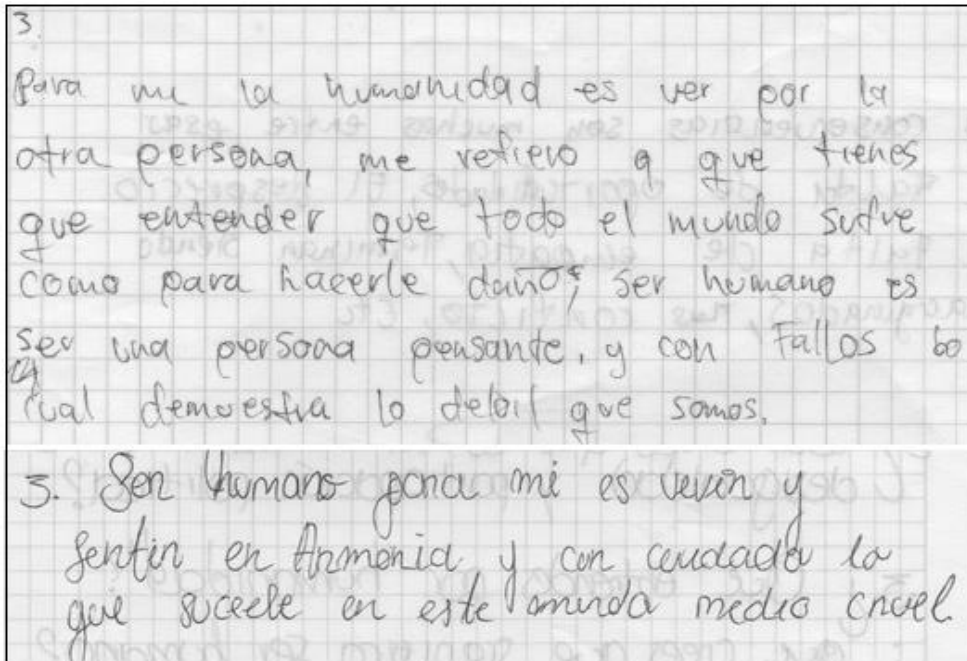 3.
Para mi la humanidad es ver por la
otra persona, me refiero a que tienes
que entender que todo el mundo sufre
como para hacerle daño; ser humano es
ser una persona pensante, y con Fallos lo
cual demuestra lo debil que somos.
3. Ser humano para mi es vivir y
sentir en Armonia y con cuidado lo
que sucede en este mundo medio cruel.